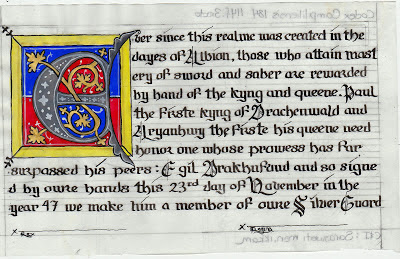 Ever since this realme was created in the
dayes of Albion, those who attain mast
ery of sword and saber are rewarded
by hand of the kyng and queene. Paul
the firste kyng of Drachenwald and
Aryanhwy the firste his queene need
honor one whose prowess has fur
surpassed his peers: Egil Drakhufaud and so signe
d by owre hands this 23rd day of November in the
year 47 we make him a member of owre Silver Guord
X Rex
X Regina